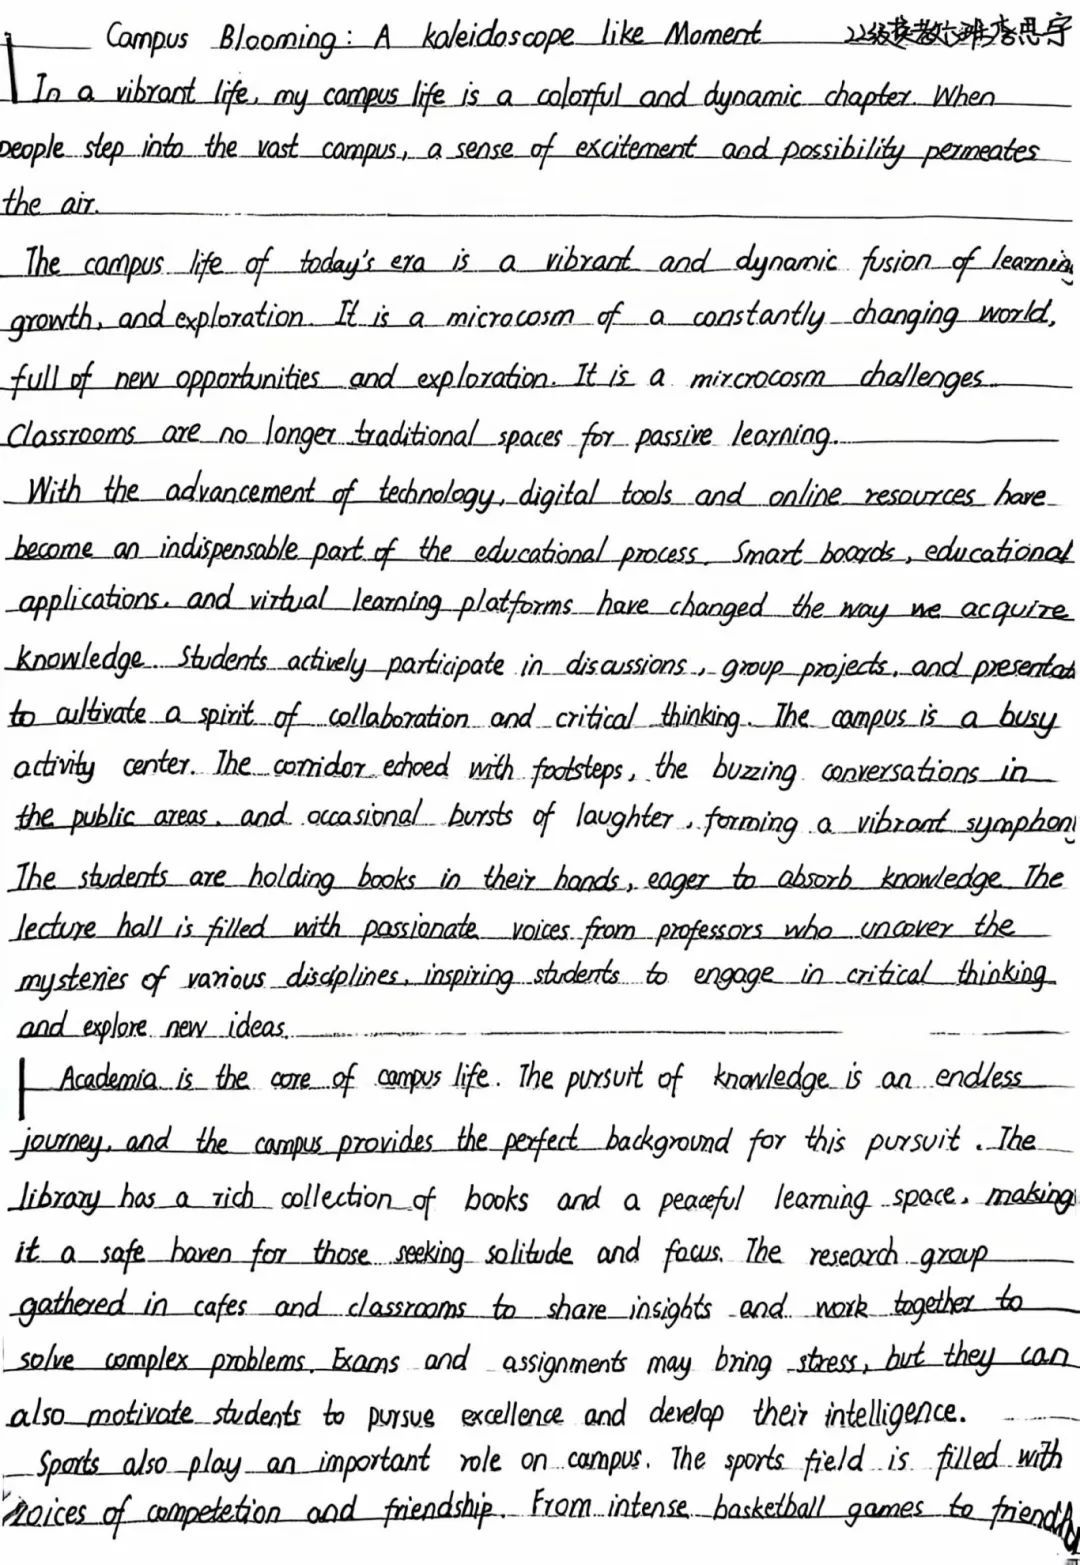 Campus Blooming: A kaleidoscope like Moment 22级英教六班李思宇
In a vibrant life, my campus life is a colorful and dynamic chapter. When
people step into the vast campus, a sense of excitement and possibility permeates
the air.
The campus life of today's era is a vibrant and dynamic fusion of learning
growth, and exploration. It is a microcosm of a constantly changing world,
full of new opportunities and exploration. It is a mircrocosm challenges.
Classrooms are no longer traditional spaces for passive learning.
With the advancement of technology, digital tools and online resources have
become an indispensable part of the educational process. Smart boards, educational
applications, and virtual learning platforms have changed the way we acquire
knowledge. Students actively participate in discussions, group projects, and presentat
to cultivate a spirit of collaboration and critical thinking. The campus is a busy
activity center. The corridor echoed with footsteps, the buzzing conversations in
the public areas, and occasional bursts of laughter, forming a vibrant symphony
The students are holding books in their hands, eager to absorb knowledge. The
lecture hall is filled with passionate voices from professors who uncover the
mysteries of various disciplines, inspiring students to engage in critical thinking
and explore new ideas.
Academia is the core of campus life. The pursuit of knowledge is an endless
journey, and the campus provides the perfect background for this pursuit. The
library has a rich collection of books and a peaceful learning space, making
it a safe haven for those seeking solitude and focus. The research group
gathered in cafes and classrooms to share insights and work together to
solve complex problems. Exams and assignments may bring stress, but they can
also motivate students to pursue excellence and develop their intelligence.
Sports also play an important role on campus. The sports field is filled with
voices of competetion and friendship. From intense basketball games to friendly